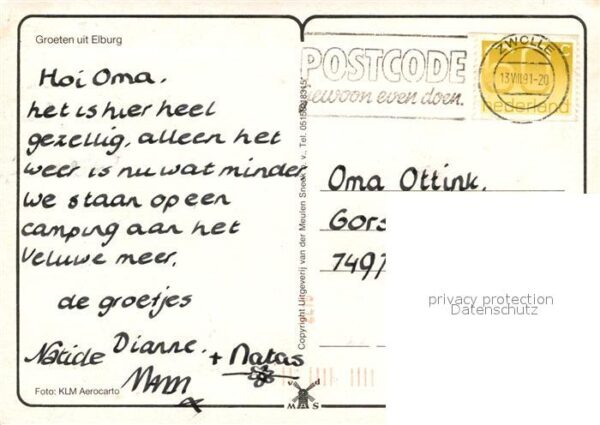 Groeten uit Elburg
Hoi Oma.
het is hier heel
gezellig, alleen het
weer is nu wat minder
We staan op een
camping aan het
Veluwe meer.
de groetjes
Dianne.
+ Natas
Mam
Foto: KLM Aerocarto
Copyright Uitgeverij van der Meulen Sneek b.v., Tel. 05150
v d
MAS
POSTCODE
gewoon even doen.
ZWOLLE
13.VIII.91-20
c
nederland
Oma Ottink.
Gors
7497
privacy protection
Datenschutz